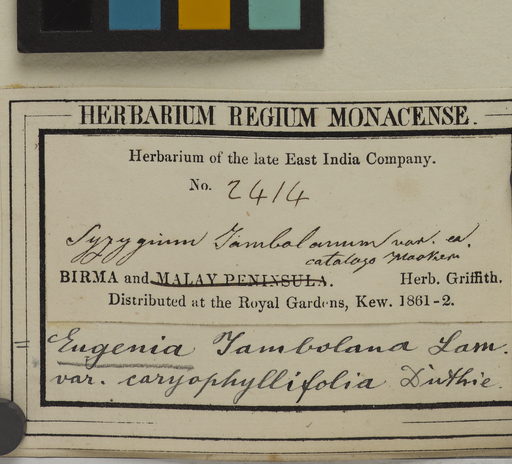 HERBARIUM REGIUM MONACENSE.
Herbarium of the late East India Company.
No. 2414
Syzygium Jambolanum var. ex.
catalogo Hookeri
BIRMA and MALAY PENINSULA. Herb. Griffith.
Distributed at the Royal Gardens, Kew. 1861-2.
= Eugenia Jambolana Lam.
var. caryophyllifolia Duthie.